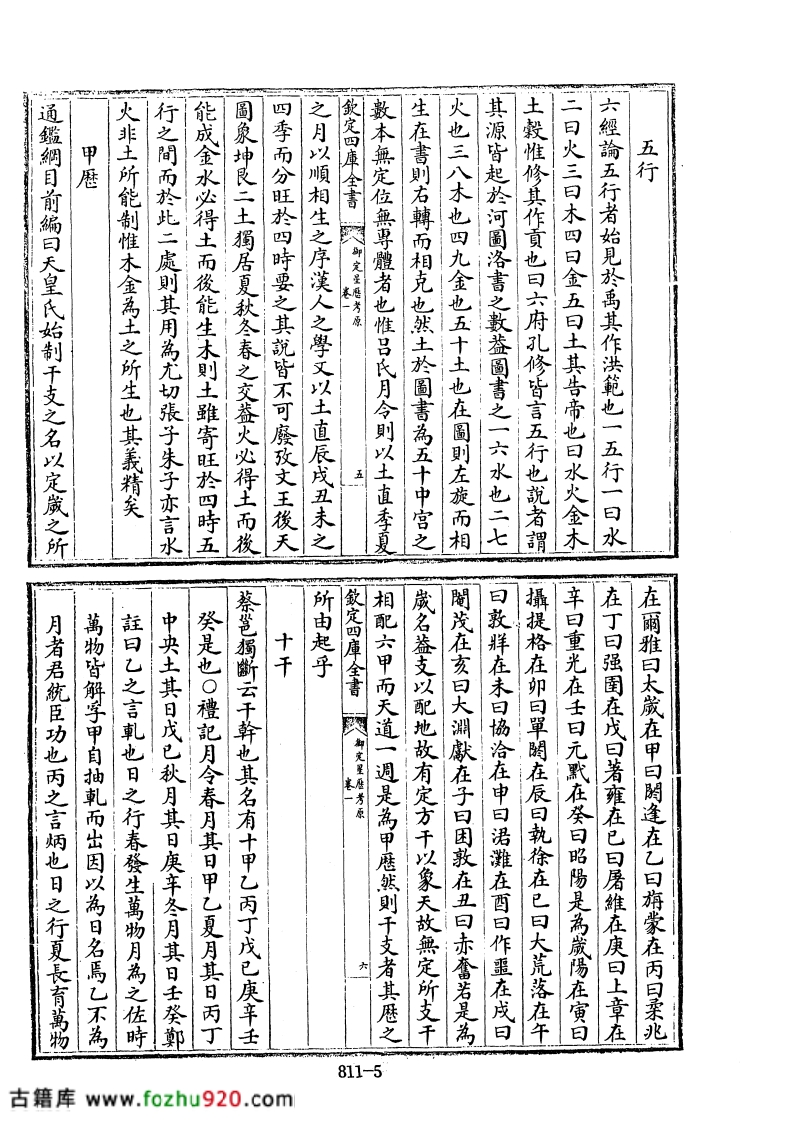 五行
六經論五行者始見於禹其作洪範也一五行一曰水
二曰火三曰木四曰金五曰土其告帝也曰水火金木
土穀惟修其作貢也曰六府孔修皆言五行也說者謂
其源皆起於河圖洛書之數葢圖書之一六水也二七
火也三八木也四九金也五十土也在圖則左旋而相
生在書則右轉而相克也然土於圖書為五十中宫之
數本無定位無專體者也惟吕氏月令則以土直季夏
欽定四庫全書
御定星歷考原
卷一
五
之月以順相生之序漢人之學又以土直辰戌丑未之
四季而分旺於四時要之其說皆不可廢攷文王後天
圖象坤艮二土獨居夏秋冬春之交葢火必得土而後
能成金水必得土而後能生木則土雖寄旺於四時五
行之間而於此二處則其用為尤切張子朱子亦言水
火非土所能制惟木金為土之所生也其義精矣
甲歷
通鑑綱目前編曰天皇氏始制干支之名以定嵗之所
在爾雅曰太嵗在甲曰閼逢在乙曰旃蒙在丙曰柔兆
在丁曰强圉在戊曰著雍在已曰屠維在庚曰上章在
辛曰重光在壬曰元黓在癸曰昭陽是為嵗陽在寅曰
攝提格在卯曰單閼在辰曰執徐在巳曰大荒落在午
曰敦牂在未曰協洽在申曰涒灘在酉曰作噩在戌曰
閹茂在亥曰大淵獻在子曰困敦在丑曰赤奮若是為
嵗名葢支以配地故有定方干以象天故無定所支干
相配六甲而天道一週是為甲歷然則干支者其歷之
欽定四庫全書
御定星歷考原
卷一
六
所由起乎
十干
蔡邕獨斷云干幹也其名有十甲乙丙丁戊已庚辛壬
癸是也○禮記月令春月其日甲乙夏月其日丙丁
中央土其日戊已秋月其日庚辛冬月其日壬癸鄭
註曰乙之言軋也日之行春發生萬物月為之佐時
萬物皆解孚甲自抽軋而出因以為日名焉乙不為
月者君統臣功也丙之言炳也日之行夏長育萬物
811-5
古籍库 www.fozhu920.com